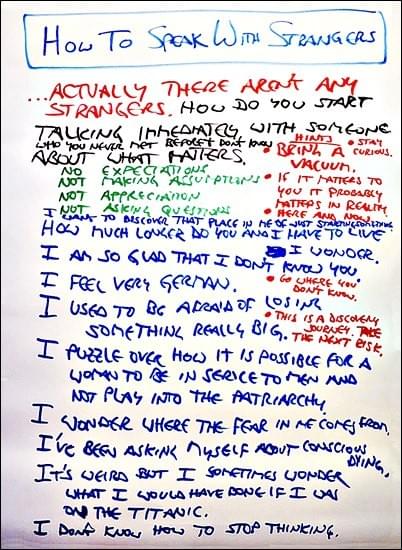 HOW TO SPEAK WITH STRANGERS
...ACTUALLY THERE AREN'T ANY
STRANGERS. HOW DO YOU START
TALKING IMMEDIATELY WITH SOMEONE
WHO YOU NEVER MET BEFORE? DON'T KNOW
ABOUT WHAT MATTERS.
HINTS
• STAY CURIOUS.
• BRING A
VACUUM.
• IF IT MATTERS TO
YOU IT PROBABLY
MATTERS IN REALITY.
• HERE AND NOW.
NO EXPECTATIONS
NOT MAKING ASSUMPTIONS
NOT APPRECIATION
NOT ASKING QUESTIONS
I WANT TO DISCOVER THAT PLACE IN ME OF JUST STARTING
HOW MUCH LONGER DO YOU AND I HAVE TO LIVE
I WONDER.
I AM SO GLAD THAT I DON'T KNOW YOU.
• GO WHERE YOU
DON'T KNOW.
I FEEL VERY GERMAN.
I USED TO BE AFRAID OF LOSING
SOMETHING REALLY BIG.
• THIS IS A DISCOVERY
JOURNEY. TAKE
THE NEXT RISK.
I PUZZLE OVER HOW IT IS POSSIBLE FOR A
WOMAN TO BE IN SERVICE TO MEN AND
NOT PLAY INTO THE PATRIARCHY.
I WONDER WHERE THE FEAR IN ME COMES FROM.
I'VE BEEN ASKING MYSELF ABOUT CONSCIOUS
DYING.
IT'S WEIRD BUT I SOMETIMES WONDER
WHAT I WOULD HAVE DONE IF I WAS
ON THE TITANIC.
I DON'T KNOW HOW TO STOP THINKING.